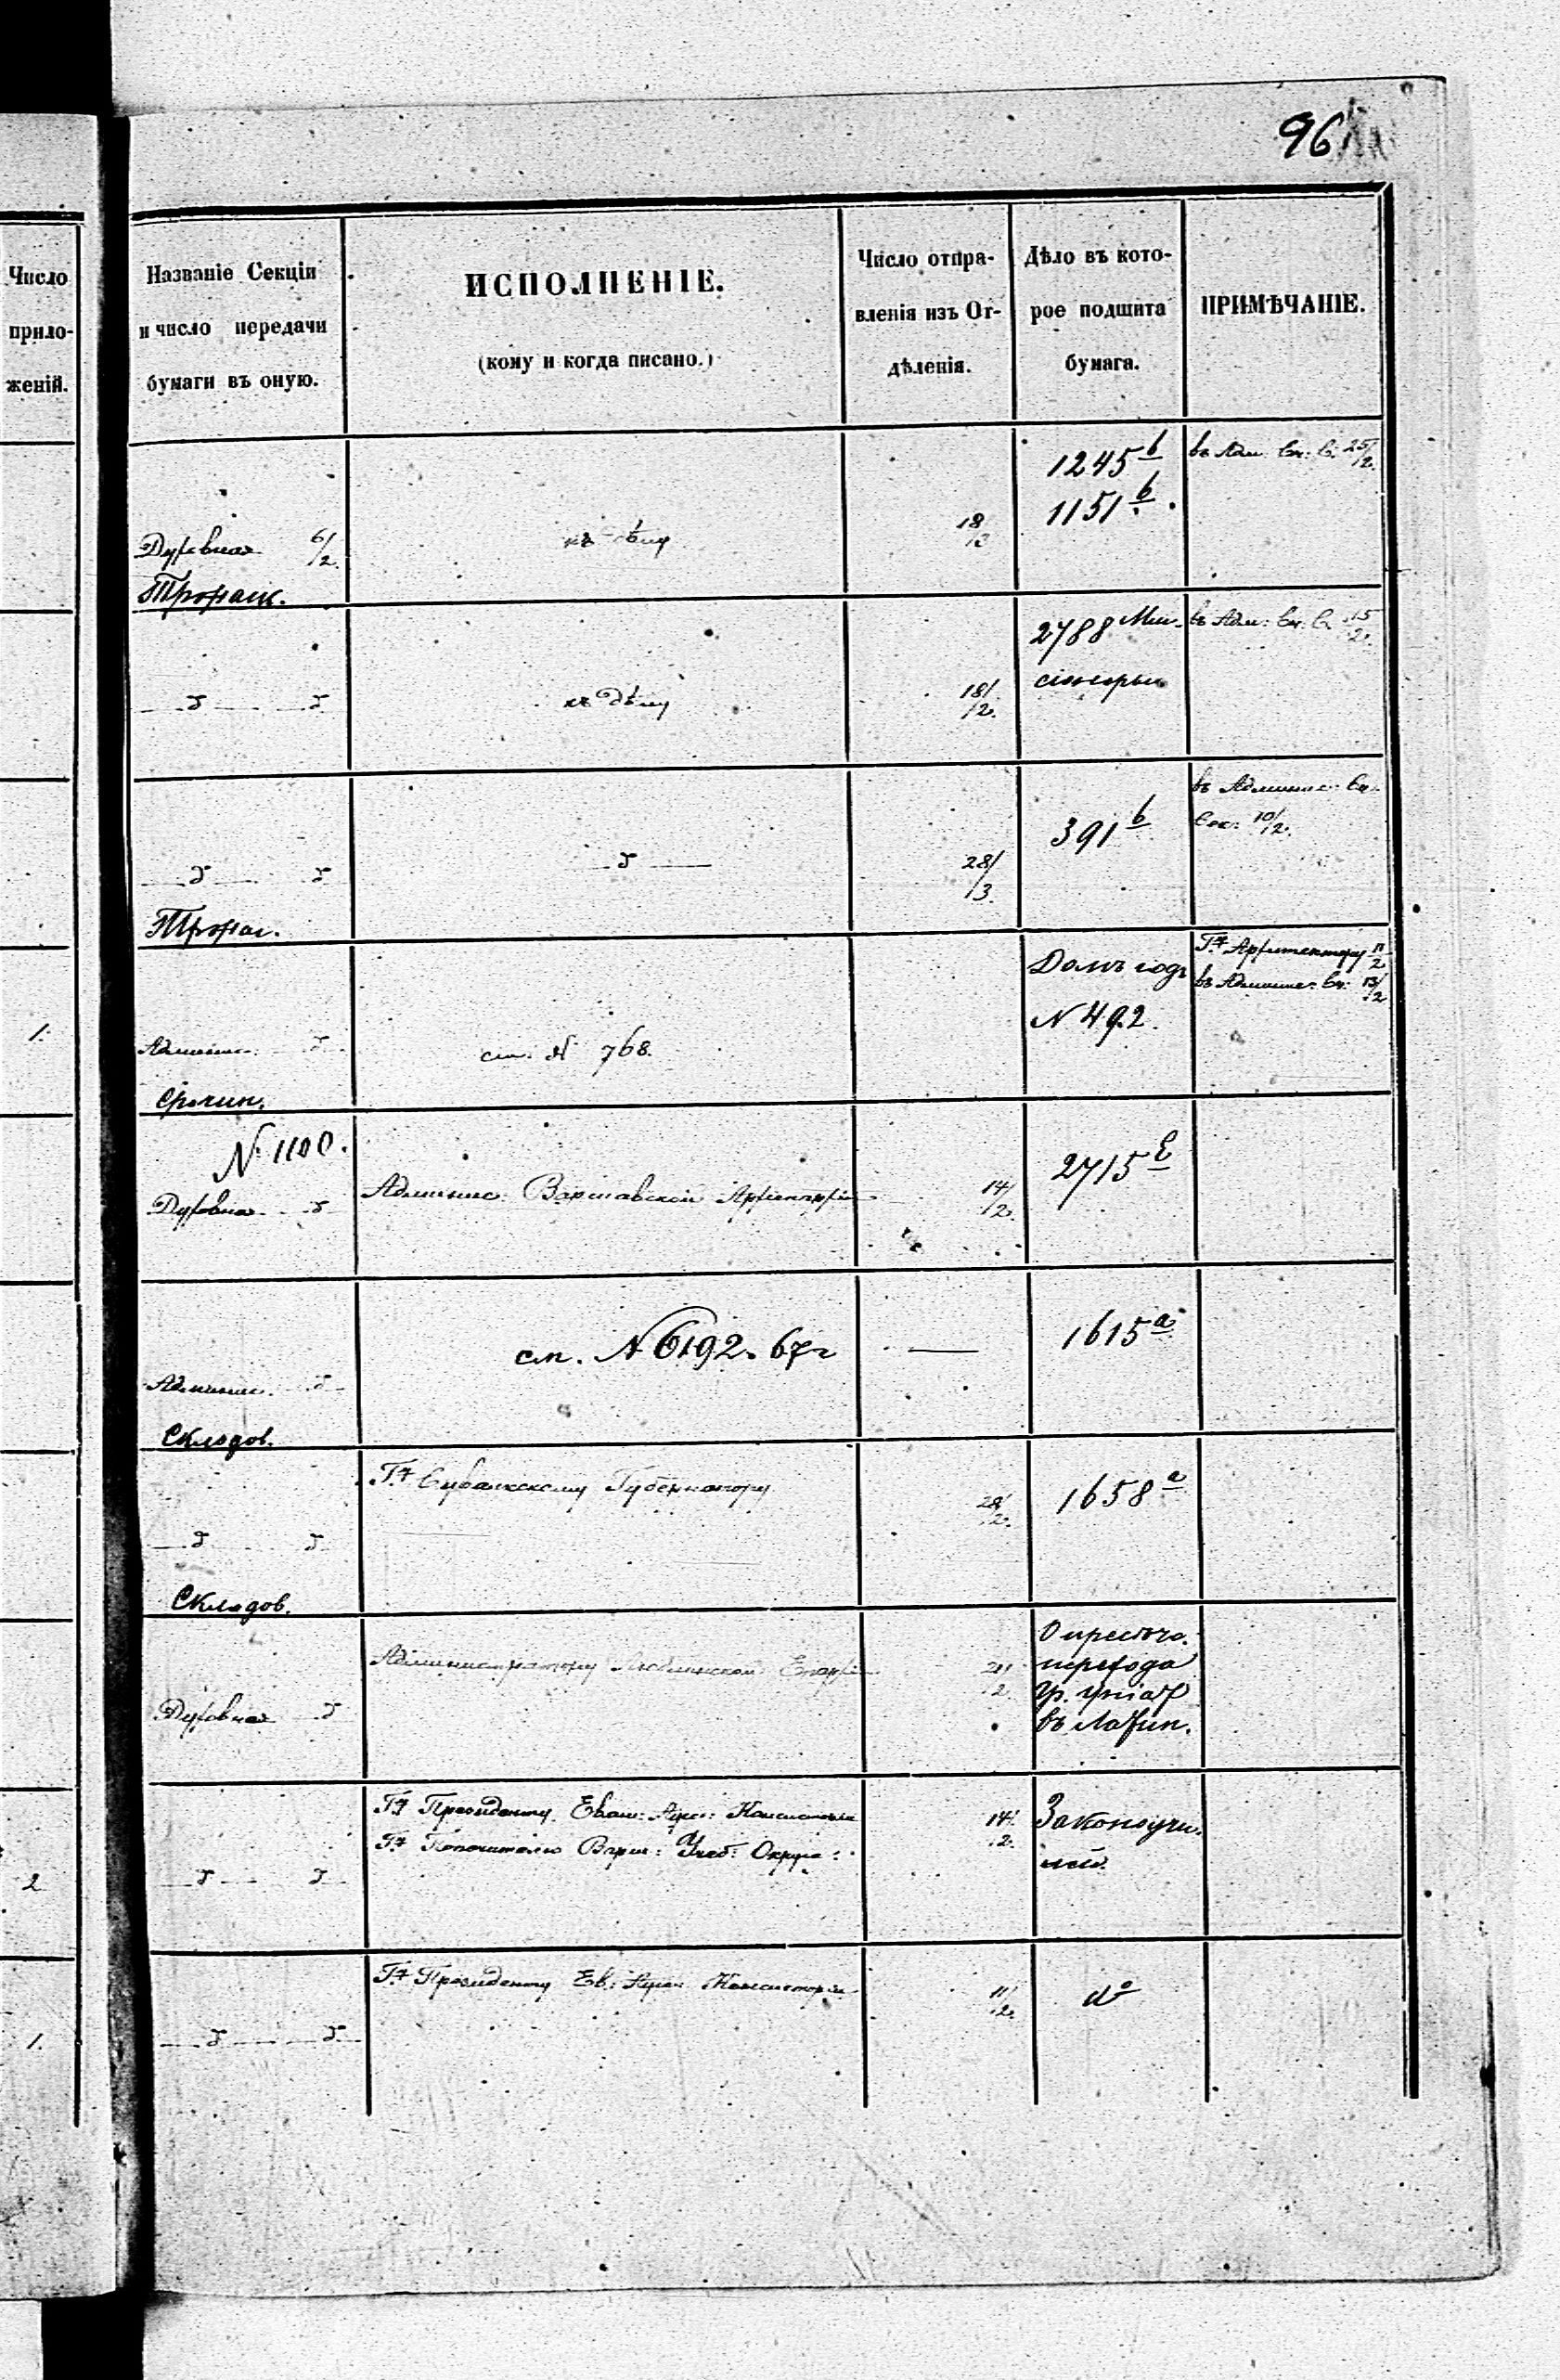 96
Число
прило-
женій.
Названіе Секціи
и число передачи
бумаги въ оную.
ИСПОЛНЕНІЕ.
(кому и когда писано.)
Число отпра-
вленія изъ От-
дѣленія.
Дѣло въ кото-
рое подшита
бумага.
ПРИМѢЧАНІЕ.
Духовная 6/2.
къ дѣлу
18/2
1245 b
1151 b.
въ Адм. 25/2.
къ дѣлу
18/2.
2788 Мин-
въ Адм: 15/2.
28/3
391 b
въ Админис.
10/2.
1.
Админис.
см. N 768.
Домъ подъ
N 492.
Гну Архитектору 11/2
въ Админис. 13/2
N. 1100.
Духовная
Админис. Варшавской Архіепархіи
14/2.
2715
Админис.
Склодов.
см. N 6192. 67 г
1615 a
Склодов.
Гну Сувалкскому Губернатору
28/2.
1658 a
Духовная
Администратору Люблинской Епархіи
2
перехода
гр. уніат
въ Латин.
2
Гну Президенту Еван: Аугс: Консисторіи
Гну Попечителю Варш: Учеб: Округа:
14/2.
Законоучи.
1.
Гну Президенту Ев: Аугс: Консисторіи
11/2.
do